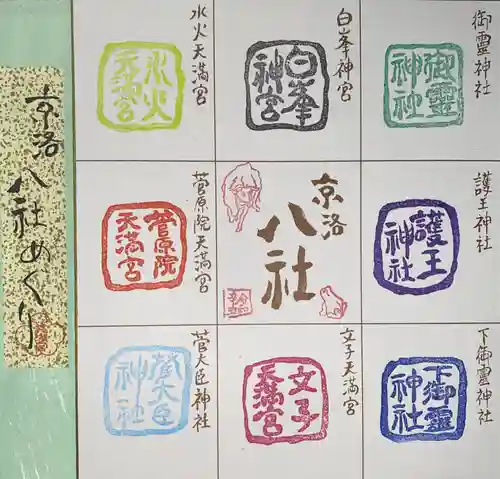 京洛八社めぐり
御霊神社
御靈神社
白峯神宮
白峯神宮
水火天満宮
水火天満宮
護王神社
護王神社
京洛
八社
菅原院天満宮
菅原院天満宮
下御霊神社
下御靈神社
文子天満宮
文子天満宮
菅大臣神社
菅大臣神社